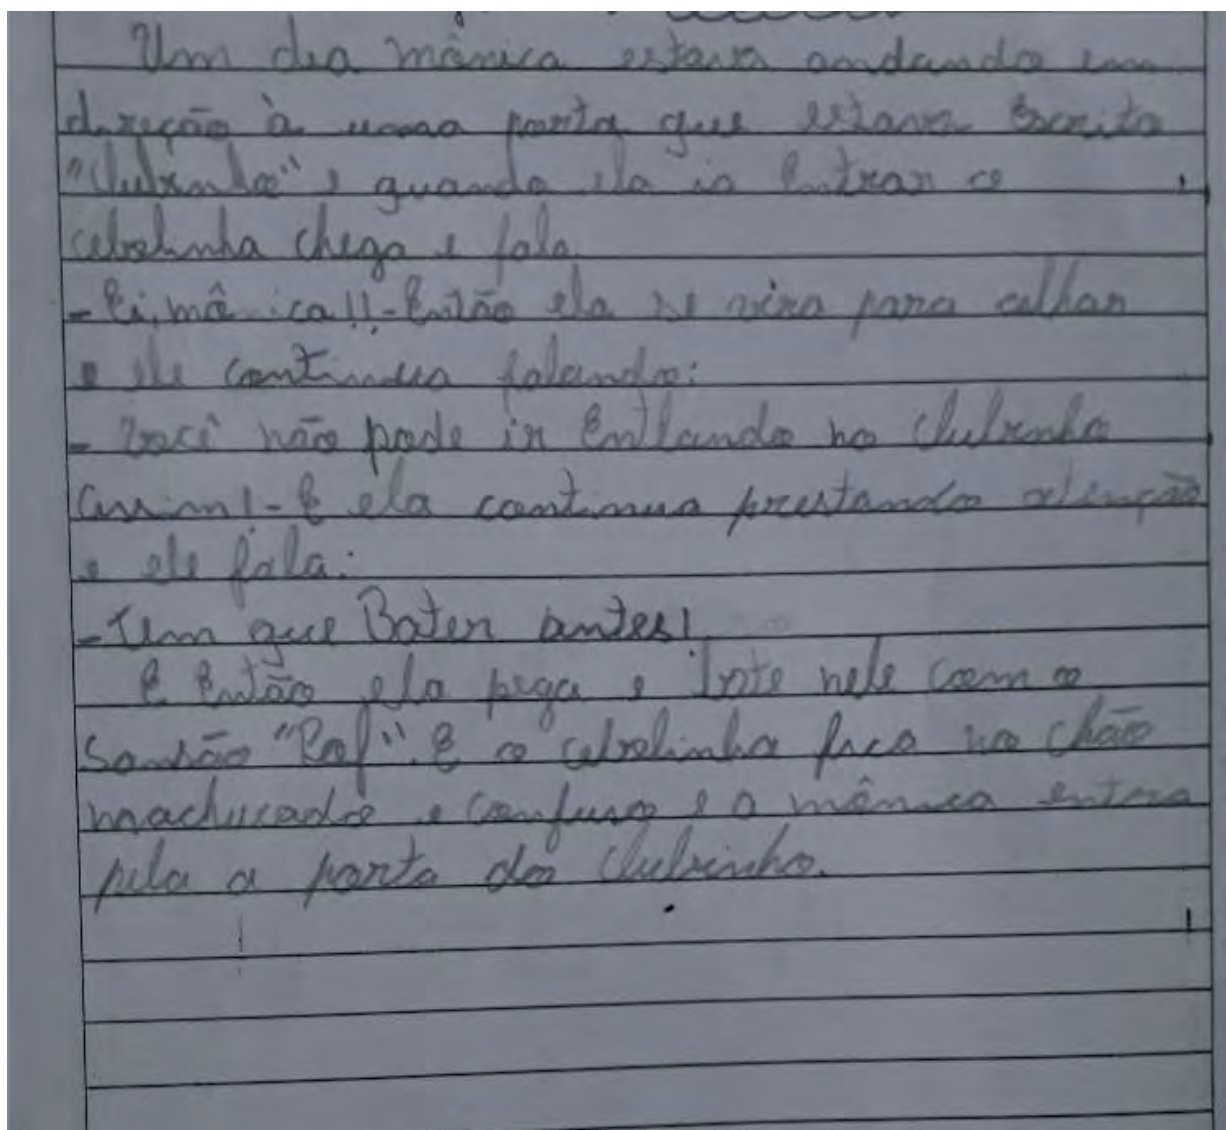 Um dia mônica estava andando em
direção à uma porta que estava Escrito
"Clubinho", quando ela ia Entrar o
cebolinha chega e fala
- Ei, mônica!! - Então ela se vira para olhar
e ele continua falando:
- você não pode ir Entlando no clubinho
assim! - E ela continua prestando atenção
e ele fala:
- Tem que Bater antes!
E Então ela pega e bate nele com o
Sansão "Pof". E o cebolinha fica no chão
machucado e confuso e a mônica entra
pela a porta do clubinho.